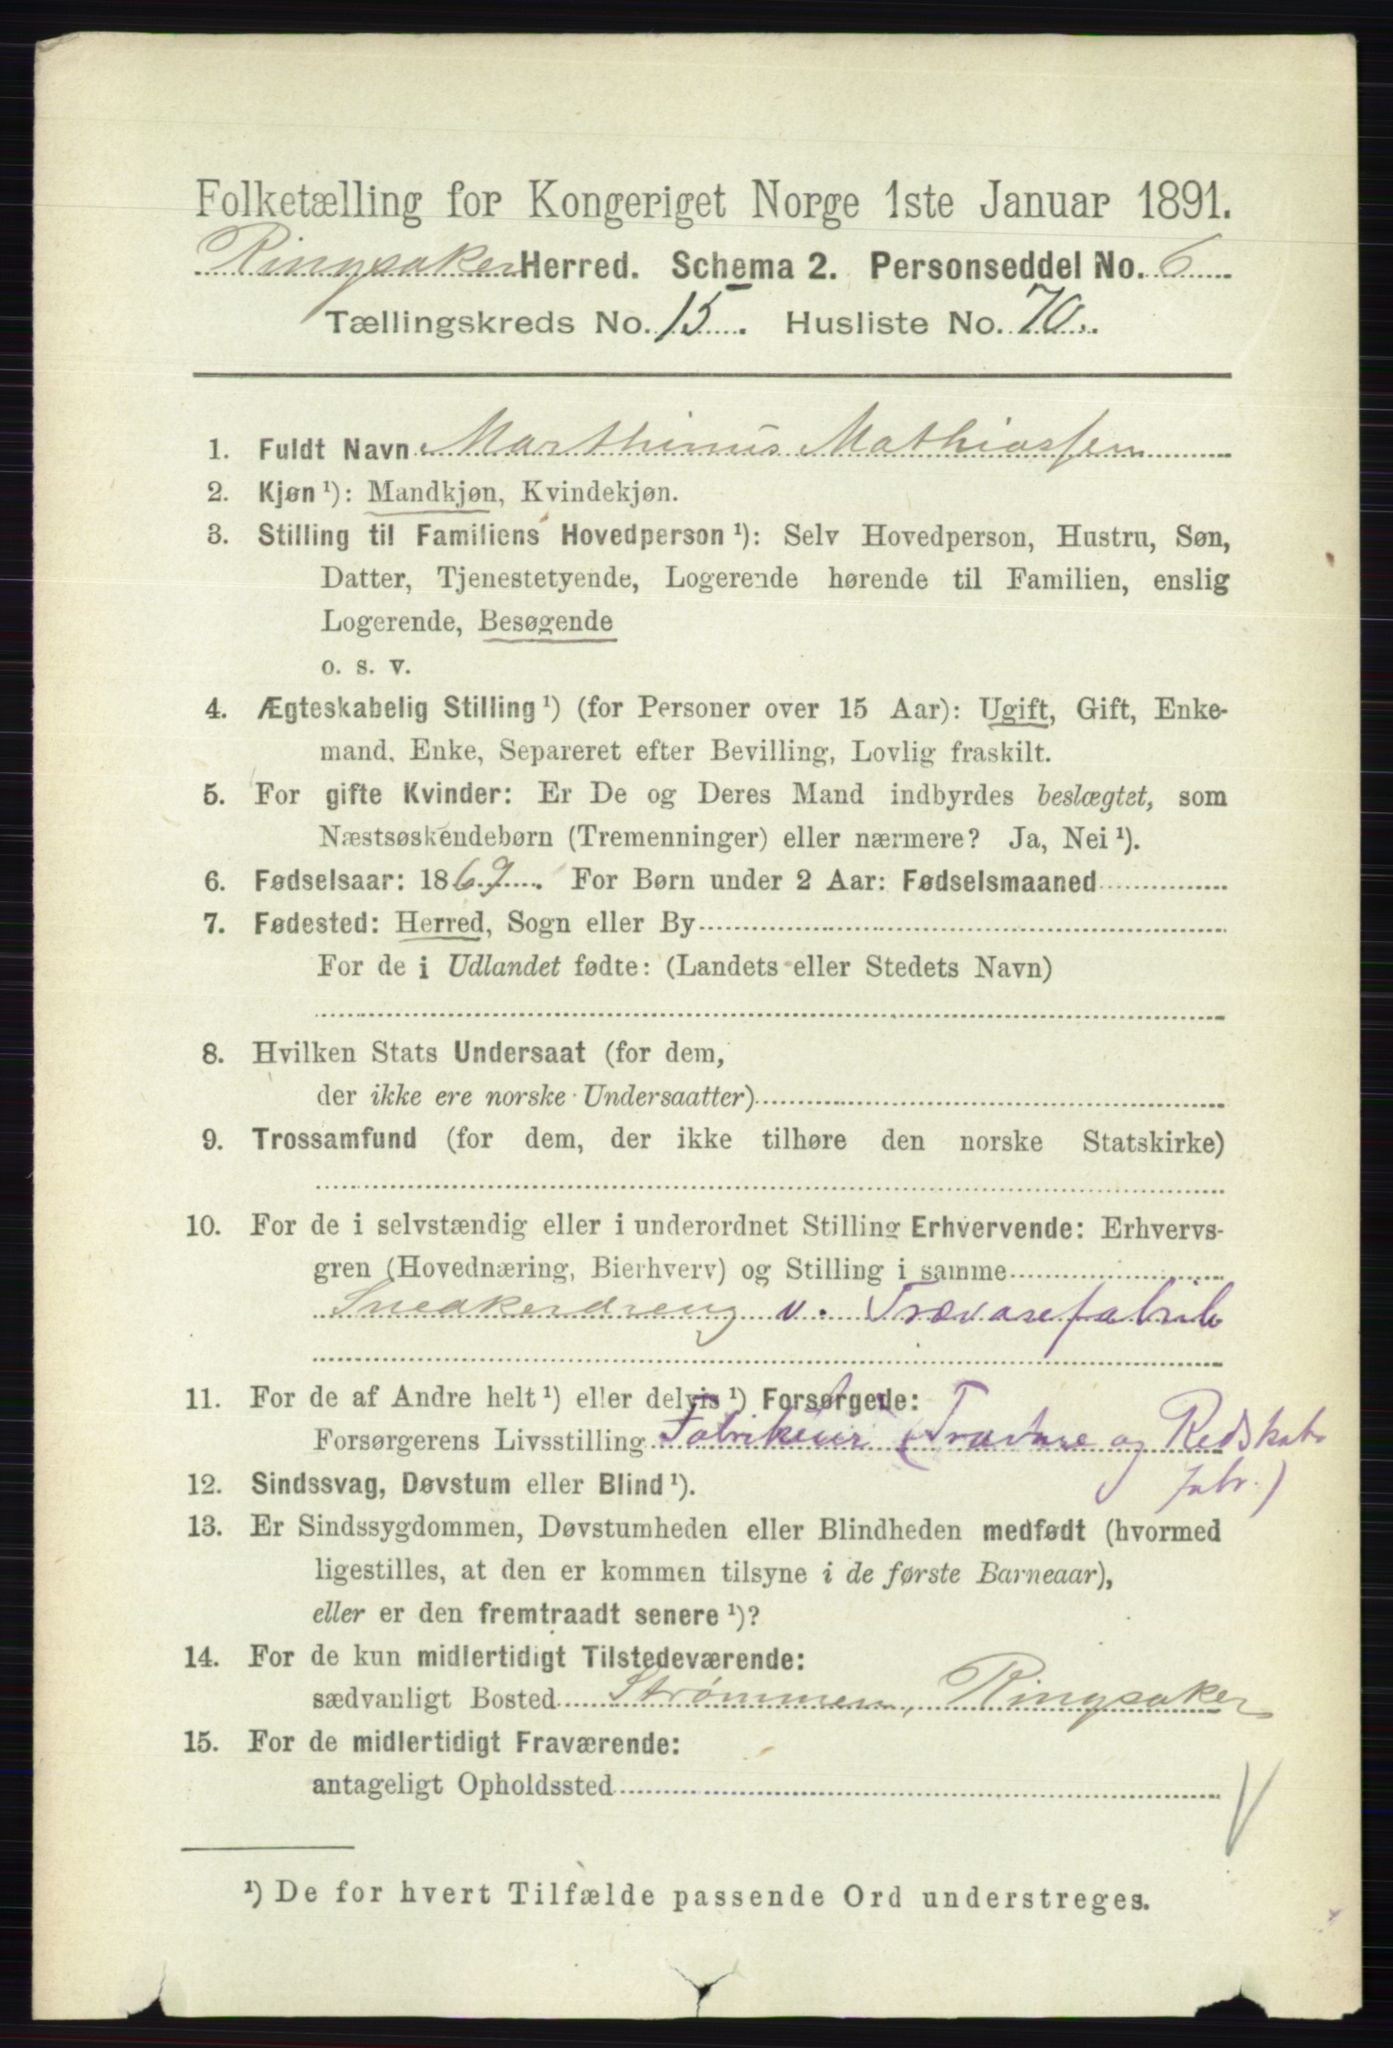 Folketælling for Kongeriget Norge 1ste Januar 1891.
Ringsaker Herred. Schema 2. Personseddel No. 6
Tællingskreds No. 15. Husliste No. 70.
1. Fuldt Navn Marthinus Mathiassen
2. Kjøn ¹): Mandkjøn, Kvindekjøn.
3. Stilling til Familiens Hovedperson ¹): Selv Hovedperson, Hustru, Søn,
Datter, Tjenestetyende, Logerende hørende til Familien, enslig
Logerende, Besøgende
o. s. v.
4. Ægteskabelig Stilling ¹) (for Personer over 15 Aar): Ugift, Gift, Enke-
mand, Enke, Separeret efter Bevilling, Lovlig fraskilt.
5. For gifte Kvinder: Er De og Deres Mand indbyrdes beslægtet, som
Næstsøskendebørn (Tremenninger) eller nærmere? Ja, Nei ¹).
6. Fødselsaar: 1869. For Børn under 2 Aar: Fødselsmaaned
7. Fødested: Herred, Sogn eller By
For de i Udlandet fødte: (Landets eller Stedets Navn)
8. Hvilken Stats Undersaat (for dem,
der ikke ere norske Undersaatter)
9. Trossamfund (for dem, der ikke tilhøre den norske Statskirke)
10. For de i selvstændig eller i underordnet Stilling Erhvervende: Erhvervs-
gren (Hovednæring, Bierhverv) og Stilling i samme
Snedkerdreng v. Trævarefabrik
11. For de af Andre helt ¹) eller delvis ¹) Forsørgede:
Forsørgerens Livsstilling Fabrikeier (Trævare og Redskabs
fabr.)
12. Sindssvag, Døvstum eller Blind ¹).
13. Er Sindssygdommen, Døvstumheden eller Blindheden medfødt (hvormed
ligestilles, at den er kommen tilsyne i de første Barneaar),
eller er den fremtraadt senere ¹)?
14. For de kun midlertidigt Tilstedeværende:
sædvanligt Bosted Strømmen, Ringsaker
15. For de midlertidigt Fraværende:
antageligt Opholdssted
¹) De for hvert Tilfælde passende Ord understreges.